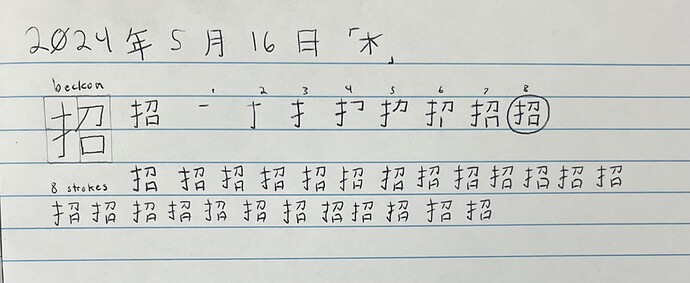 2024年5月16日「木」
beckon 1 2 3 4 5 6 7 8
招 招 招
8 strokes 招 招 招 招 招 招 招 招 招 招 招 招 招
招 招 招 招 招 招 招 招 招 招 招 招